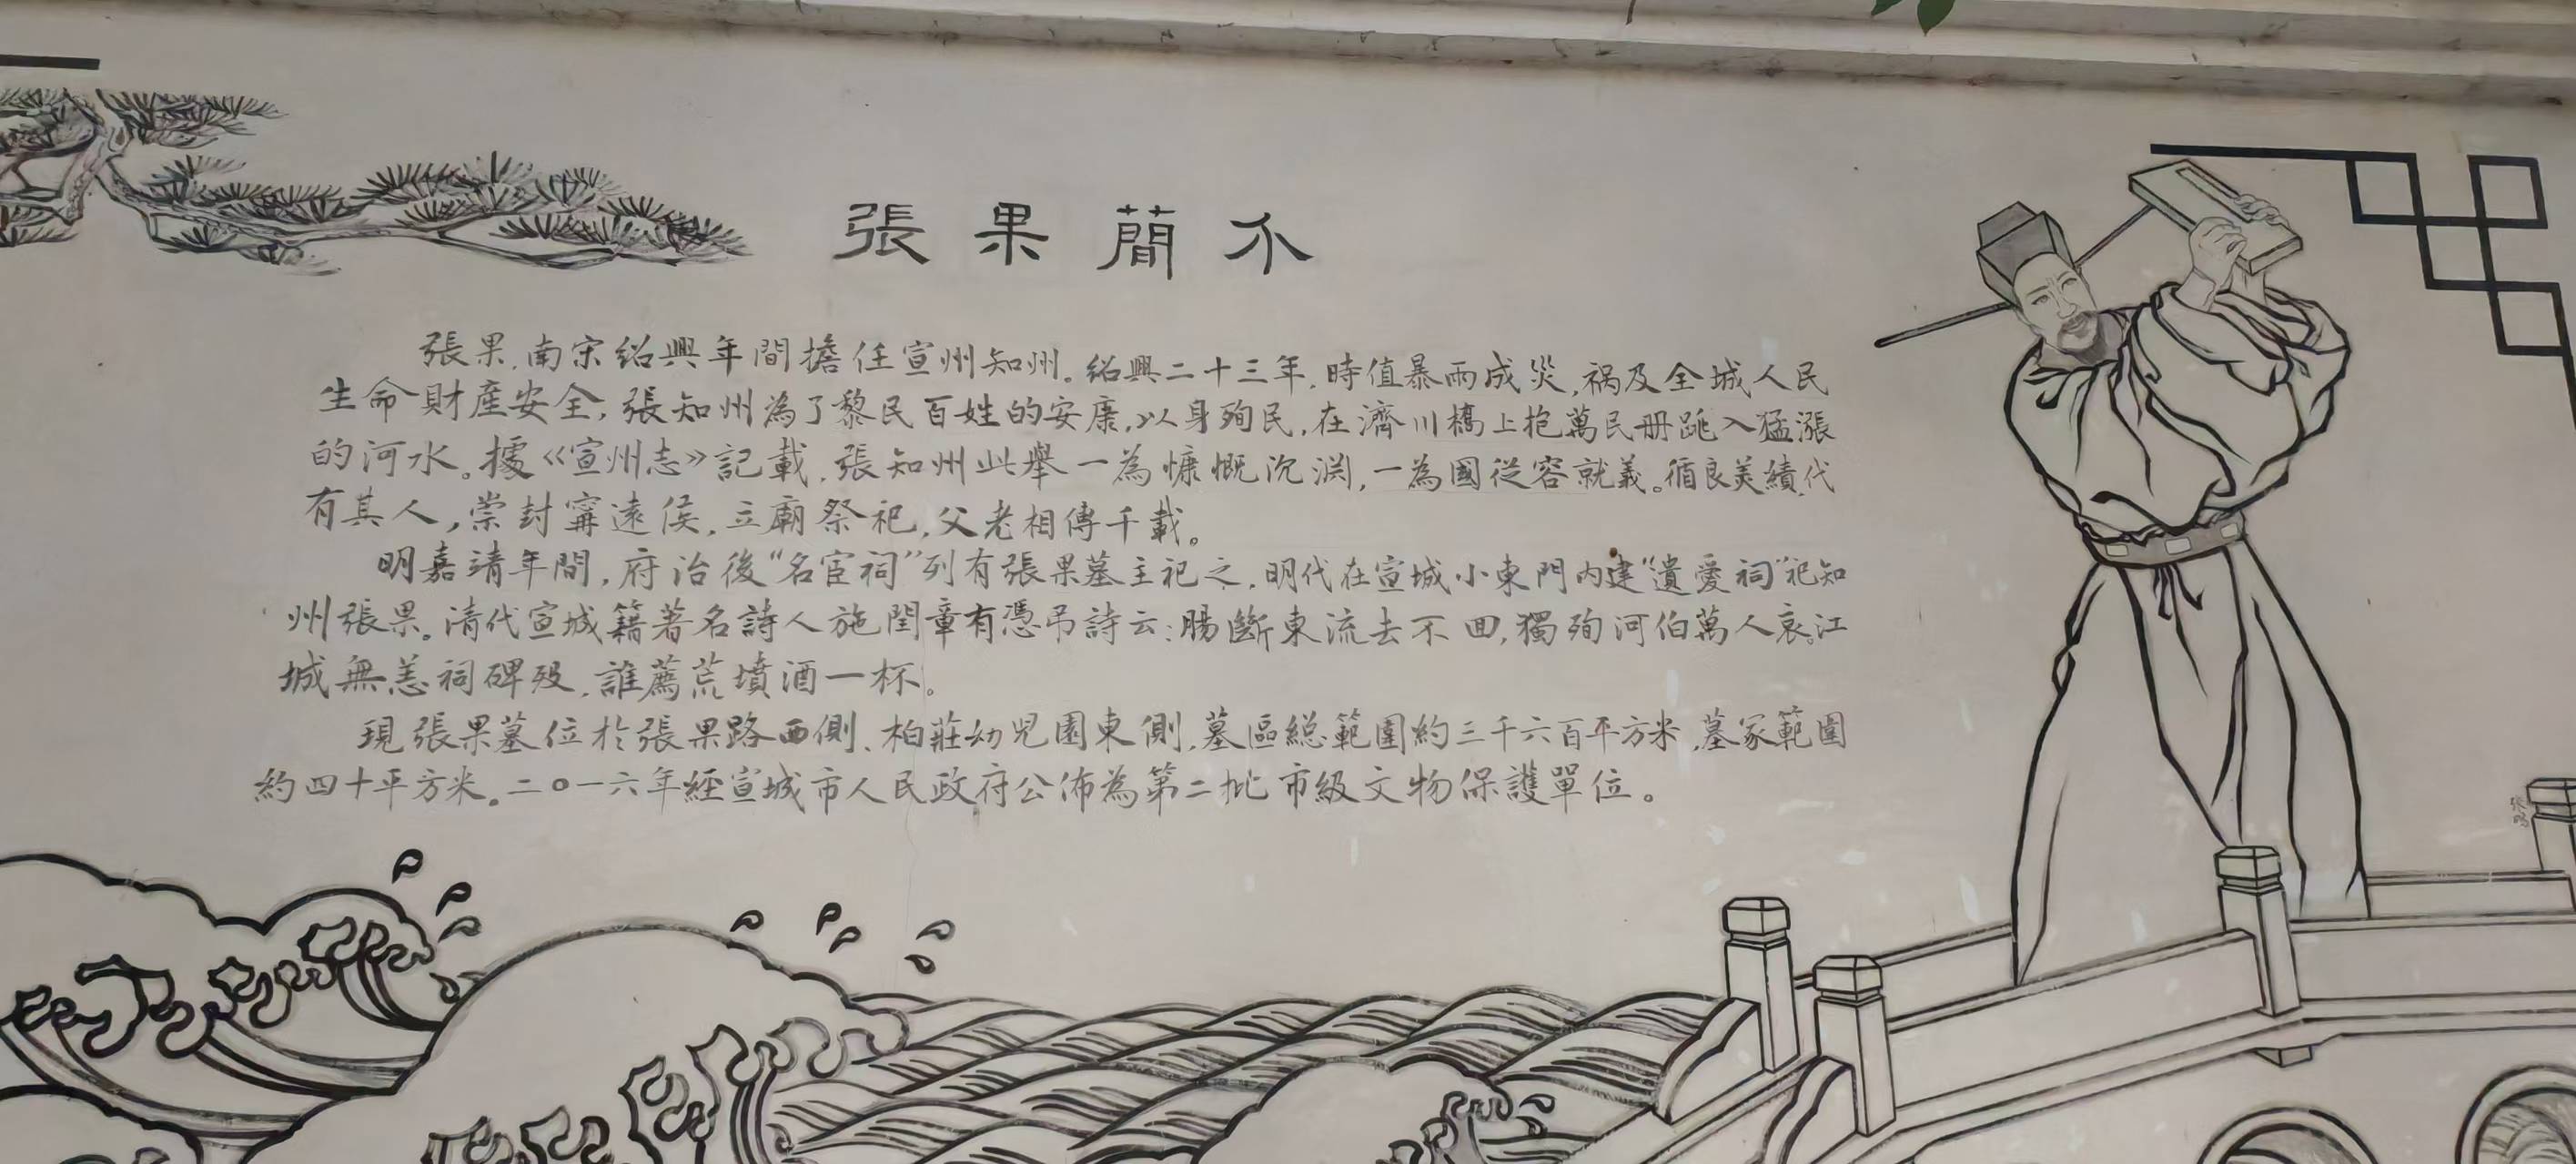 張果簡介
張果，南宋紹興年間擔任宣州知州。紹興二十三年，時值暴雨成災，禍及全城人民
生命財產安全，張知州為了黎民百姓的安康，以身殉民，在濟川橋上抱萬民册跳入猛漲
的河水。據《宣州志》記載，張知州此舉一為慷慨沉淵，一為國從容就義。循良美績，代
有其人，崇封寧遠侯，立廟祭祀，父老相傳千載。
明嘉靖年間，府治後“名宦祠”列有張果墓主祀之，明代在宣城小東門内建“遺愛祠”祀知
州張果。清代宣城籍著名詩人施閏章有憑吊詩云：腸斷東流去不回，獨殉河伯萬人哀。江
城無恙祠碑殁，誰薦荒墳酒一杯。
現張果墓位於張果路西側、柏莊幼兒園東側，墓區總範圍約三千六百平方米，墓冢範圍
約四十平方米。二〇一六年經宣城市人民政府公佈為第二批市級文物保護單位。